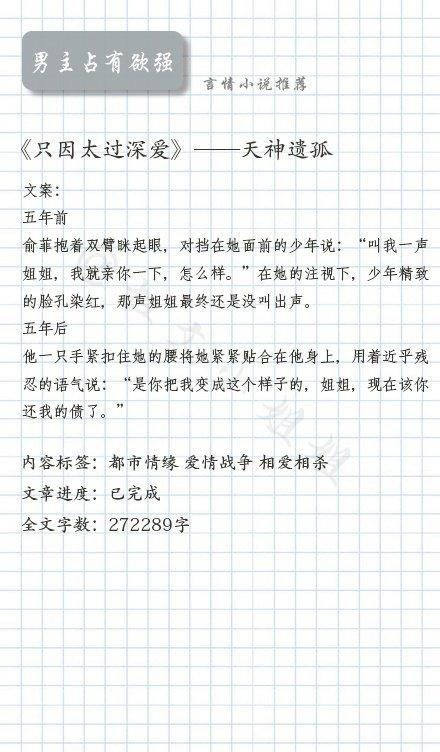 男主占有欲强
言情小说推荐
《只因太过深爱》——天神遗孤
文案：
五年前
俞菲抱着双臂眯起眼，对挡在她面前的少年说：“叫我一声
姐姐，我就亲你一下，怎么样。”在她的注视下，少年精致
的脸孔染红，那声姐姐最终还是没叫出声。
五年后
他一只手紧扣住她的腰将她紧紧贴合在他身上，用着近乎残
忍的语气说：“是你把我变成这个样子的，姐姐，现在该你
还我的债了。”
内容标签：都市情缘 爱情战争 相爱相杀
文章进度：已完成
全文字数：272289字